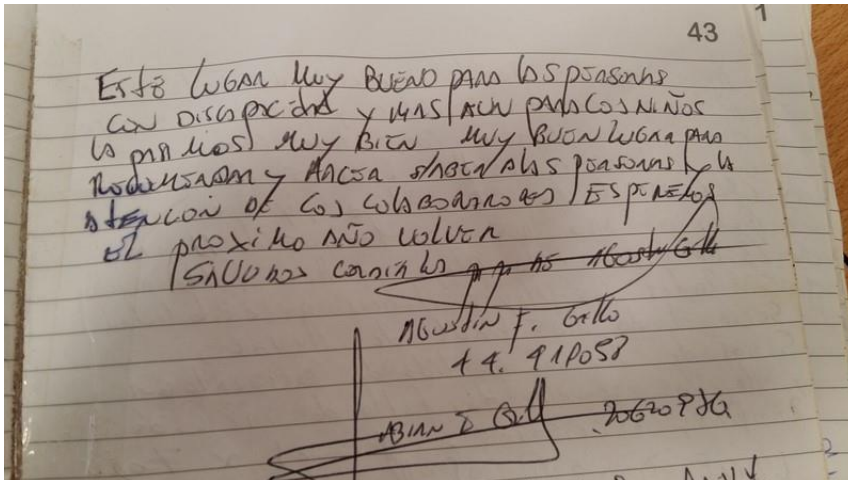 43
1
ESTE LUGAR MUY BUENO PARA LAS PERSONAS
CON DISCAPACIDAD Y MAS AUN PARA LOS NIÑOS
LA PASAMOS MUY BIEN MUY BUEN LUGAR PARA
RECOMENDAR Y HACER SABER A LAS PERSONAS Y LA
ATENCION DE LOS COLABORADORES ESPEREMOS
EL PROXIMO AÑO VOLVER
SALUDOS CORDIALES
AGUSTIN F. Gallo